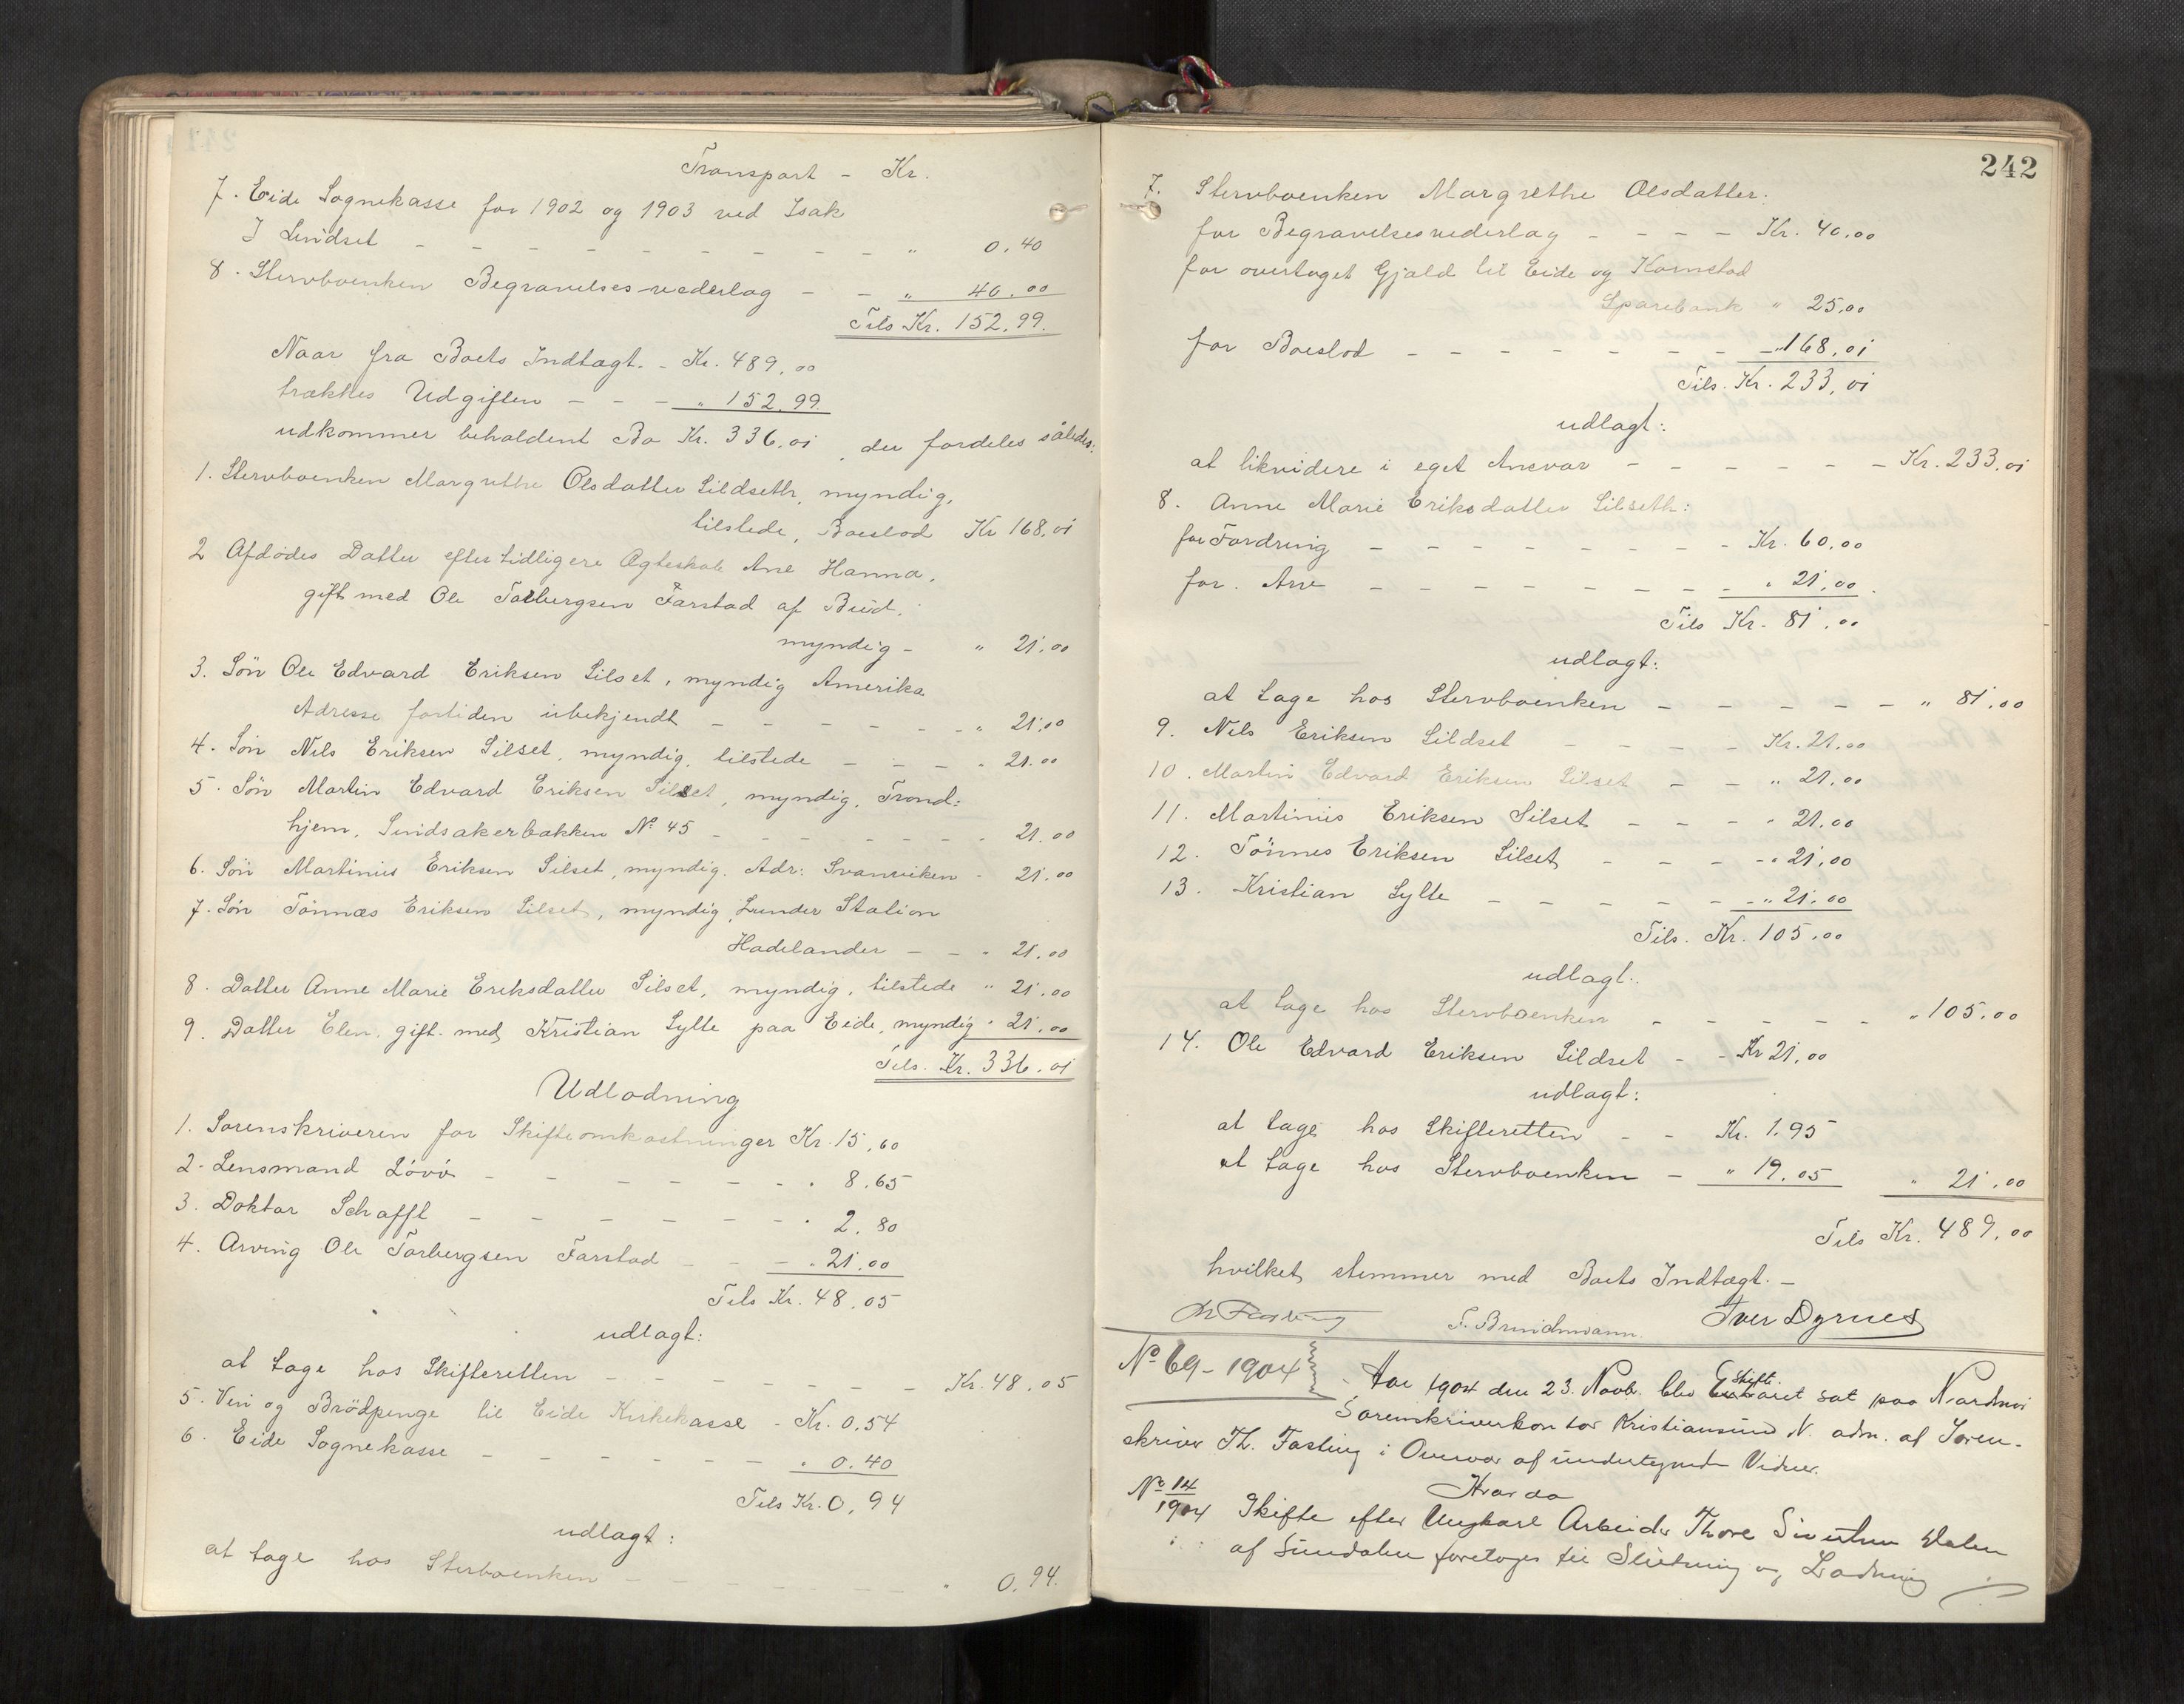 Transport - Kr.
7. Eide Sognekasse for 1902 og 1903 ved Isak
J Lindset - - - - - - - - " 0.40
8. Stervboenken Begravelses-vederlag - - " 40.00
Tils Kr. 152.99.
Naar fra Boets Indtægt. - Kr. 489,00
trækkes Udgiften - - - " 152.99
udkommer beholdent Bo Kr. 336.01, der fordeles således:
1. Stervboenken Margrethe Olsdatter Sildseth, myndig,
tilstede, Boeslod Kr 168,01
2 Afdødes Datter efter tidligere Ægteskab Ane Hanna,
gift med Ole Torbergsen Farstad af Bud,
myndig - " 21.00
3. Søn Ole Edvard Eriksen Silset, myndig Amerika
Adresse fortiden ubekjendt - - - - - " 21,00
4. Søn Nils Eriksen Silset, myndig, tilstede - - - " 21.00
5. Søn Martin Edvard Eriksen Silset, myndig, Trond:
hjem, Sindsakerbakken No 45 - - - - - - " 21.00
6. Søn Martinius Eriksen Silset, myndig. Adr: Svanviken - 21.00
7. Søn Tønnæs Eriksen Silset, myndig, Lunder Station
Hadelander - - " 21.00
8. Datter Anne Marie Eriksdatter Silset, myndig, tilstede " 21.00
9. Datter Elen, gift med Kristian Sylte paa Eide, myndig " 21.00
Tils. Kr. 336.01
Udlodning
1. Sorenskriveren for Skifteomkostninger Kr. 15,60
2. Lensmand Løvø - - - - - - " 8.65
3. Doktor Schaffl - - - - - - " 2.80
4. Arving Ole Torbergsen Farstad - - - " 21.00
Tils Kr. 48.05
udlagt:
at tage hos Skifteretten - - - - - - - Kr. 48.05
5. Vin og Brödpenge til Eide Kirkekasse - Kr. 0.54
6. Eide Sognekasse - - - - - - " 0.40
Tils Kr. 0,94
udlagt:
at tage hos Sterboenken - - - - - - - " 0.94.
242
7. Stervboenken Margrethe Olsdatter:
for Begravelsesvederlag - - - - Kr. 40.00
for overtaget Gjæld til Eide og Kornstad
Sparebank " 25,00
for Boeslod - - - - - - - " 168,01
Tils. Kr. 233,01
udlagt:
at likvidere i eget Ansvar - - - - - - Kr. 233,01
8. Anne Marie Eriksdatter Silseth:
for Fordring - - - - - - - Kr. 60,00
for Arv - - - - - - - " 21,00
Tils Kr. 81.00
udlagt:
at tage hos Stervboenken - - - - - " 81,00
9. Nils Eriksen Sildset - - - - Kr. 21.00
10. Martin Edvard Eriksen Silset - - " 21.00
11. Martinius Eriksen Silset - - - " 21.00
12. Tönnes Eriksen Silset - - - " 21,00
13. Kristian Sylte - - - - - - " 21.00
Tils. Kr. 105.00
udlagt:
at tage hos Stervboenken - - - - - " 105.00
14. Ole Edvard Eriksen Sildset - - Kr 21,00
udlagt:
at tage hos Skifteretten - - Kr. 1.95
at tage hos Stervboenken - " 19.05 " 21.00
Tils Kr. 489.00
hvilket stemmer med Boets Indtægt. -
Th Fasting F. Brinchmann Iver Dyrnes
No 69 - 1904 Aar 1904 den 23. Novb. blev Skifteret sat paa Nordmør
Sorenskriverkontor Kristiansund N. adm. af Soren-
skriver Th. Fasting i Overvær af undertegnede Vidner.
Hvorda
No 14/1904 Skifte efter Ungkarl Arbeider Thore Sivertsen Dalen
af Sundalen foretages til Slutning og Lodning